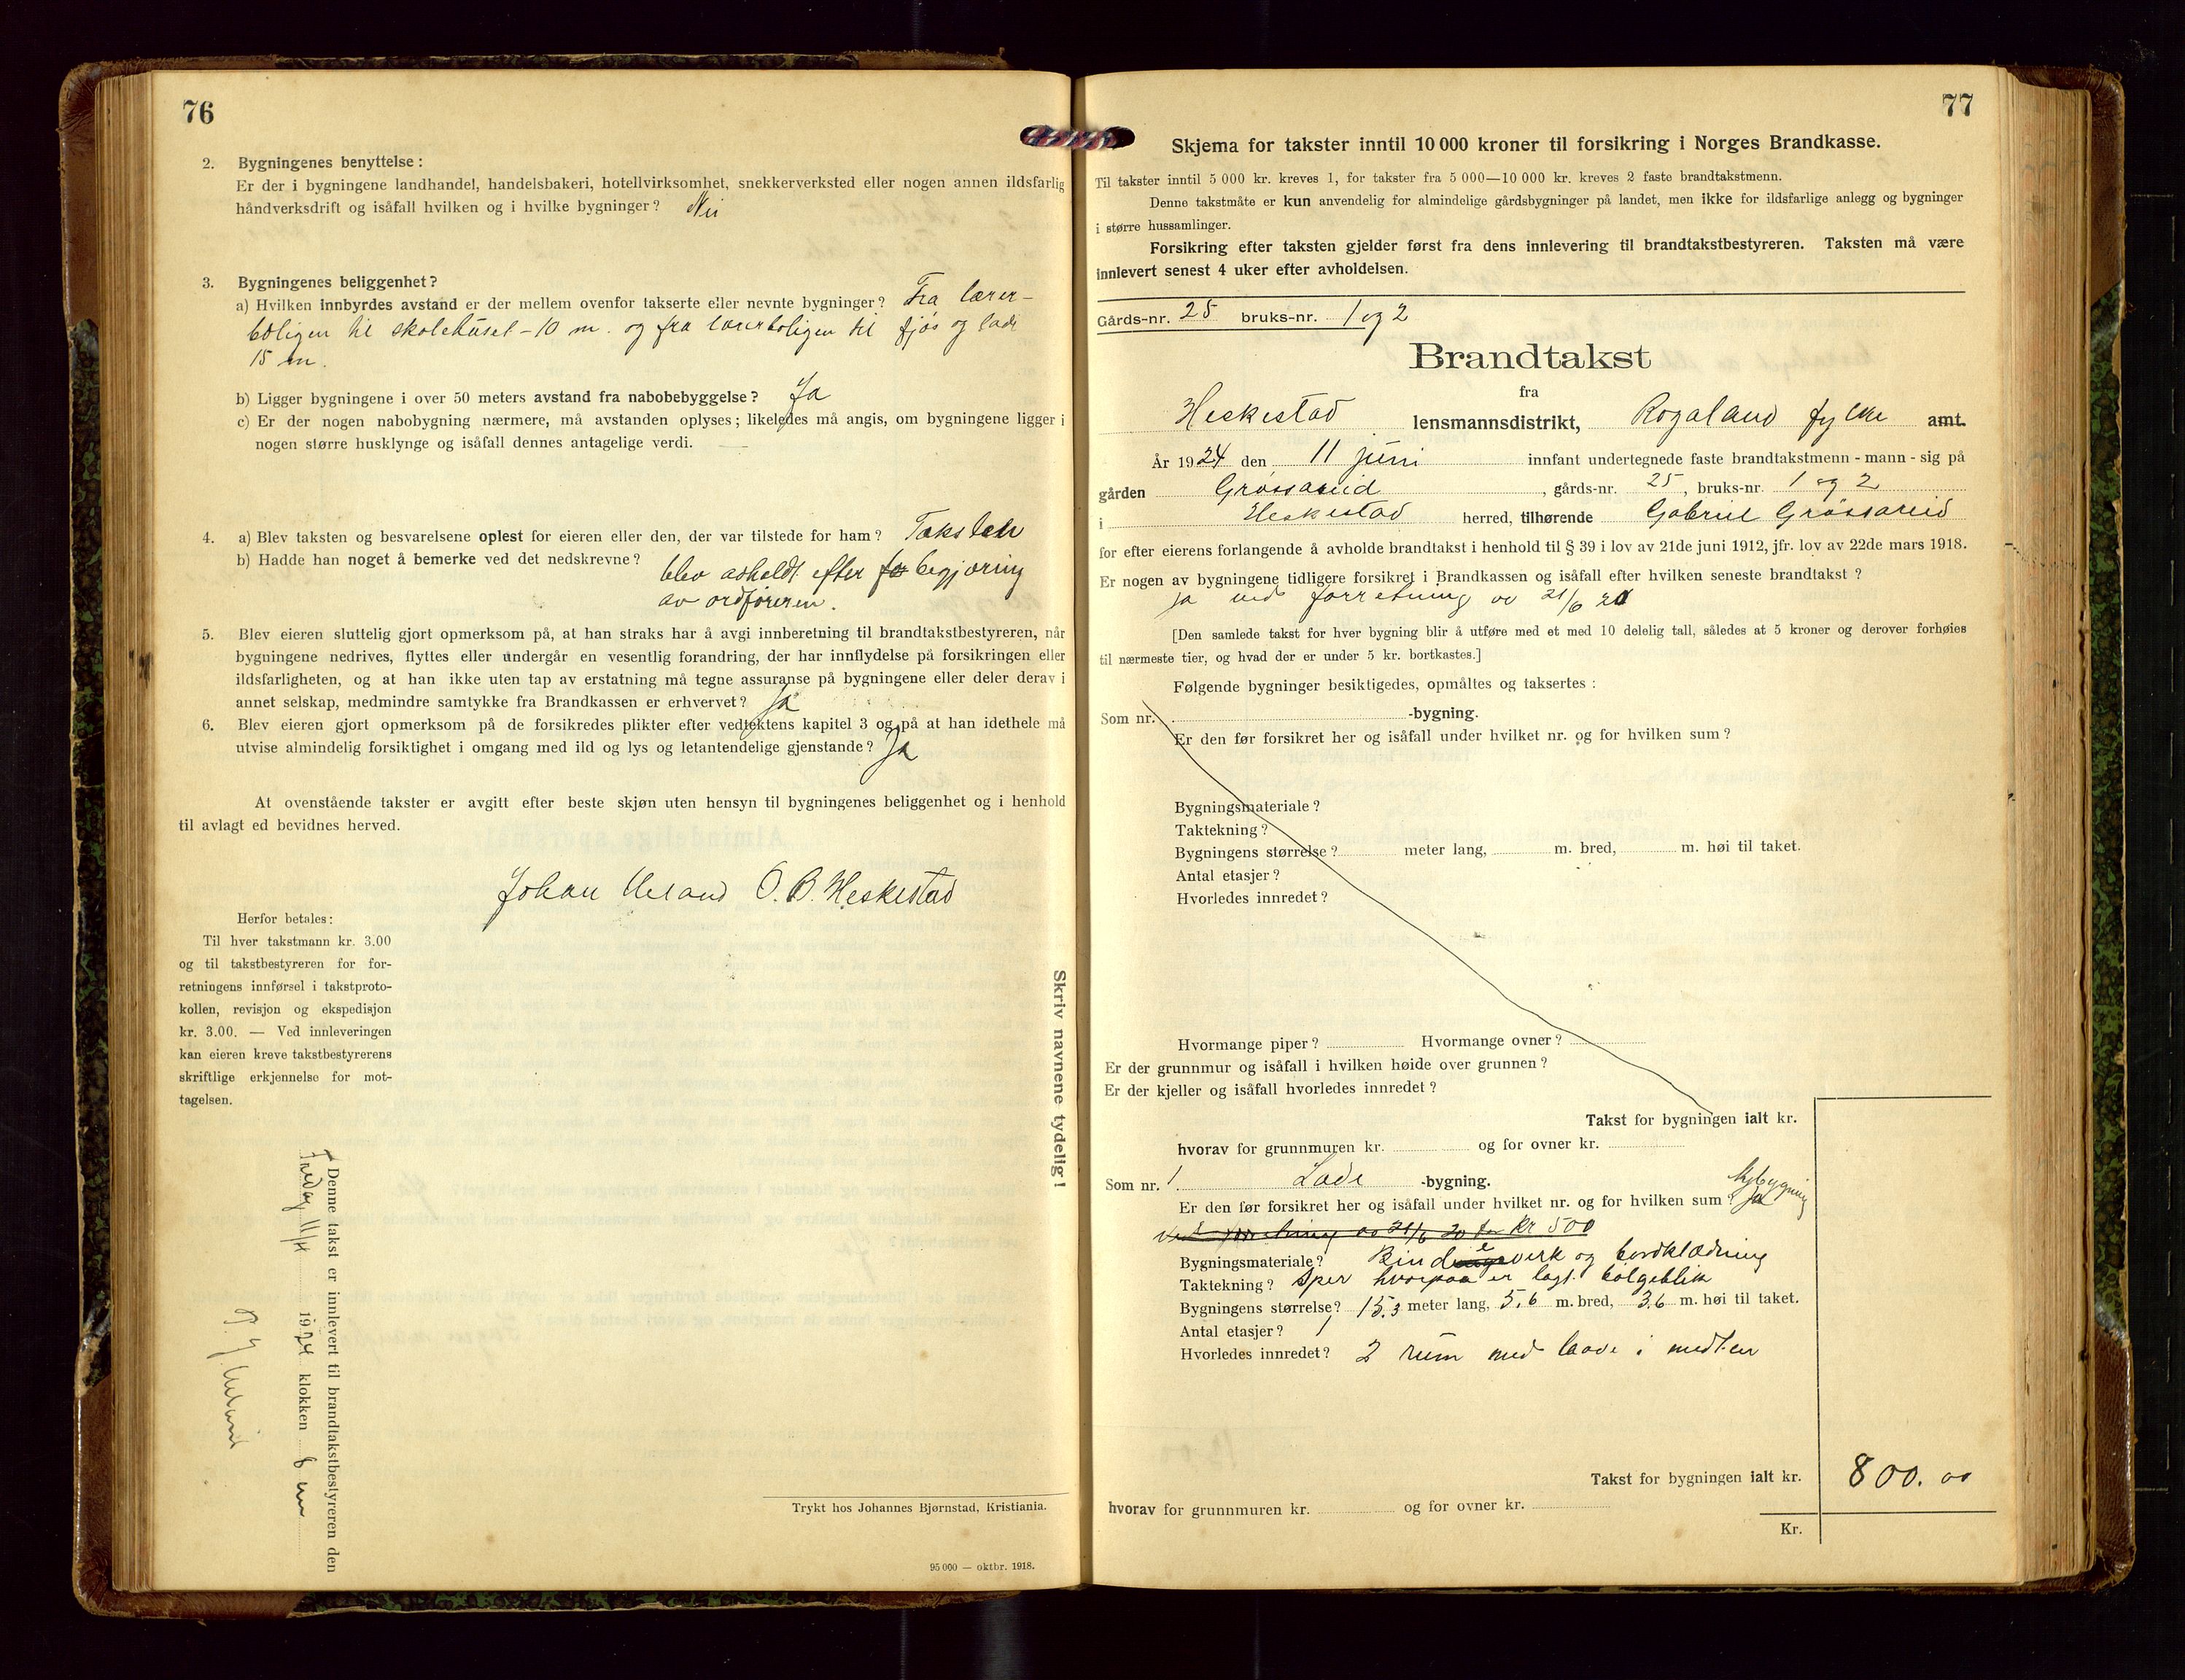 76
2. Bygningenes benyttelse:
Er der i bygningene landhandel, handelsbakeri, hotellvirksomhet, snekkerverksted eller nogen annen ildsfarlig
håndverksdrift og isåfall hvilken og i hvilke bygninger? Nei
3. Bygningenes beliggenhet?
a) Hvilken innbyrdes avstand er der mellem ovenfor takserte eller nevnte bygninger? Fra lærer-
boligen til skolehuset - 10 m. og fra lærerboligen til fjøs og lade
15 m.
b) Ligger bygningene i over 50 meters avstand fra nabobebyggelse? Ja
c) Er der nogen nabobygning nærmere, må avstanden oplyses; likeledes må angis, om bygningene ligger i
nogen større husklynge og isåfall dennes antagelige verdi. —
4. a) Blev taksten og besvarelsene oplest for eieren eller den, der var tilstede for ham? Taksten
b) Hadde han noget å bemerke ved det nedskrevne? blev avholdt efter for begjæring
av ordføreren.
5. Blev eieren sluttelig gjort opmerksom på, at han straks har å avgi innberetning til brandtakstbestyreren, når
bygningene nedrives, flyttes eller undergår en vesentlig forandring, der har innflydelse på forsikringen eller
ildsfarligheten, og at han ikke uten tap av erstatning må tegne assuranse på bygningene eller deler derav i
annet selskap, medmindre samtykke fra Brandkassen er erhvervet? Ja
6. Blev eieren gjort opmerksom på de forsikredes plikter efter vedtektens kapitel 3 og på at han idethele må
utvise almindelig forsiktighet i omgang med ild og lys og letantendelige gjenstande? Ja
At ovenstående takster er avgitt efter beste skjøn uten hensyn til bygningenes beliggenhet og i henhold
til avlagt ed bevidnes herved.
Johan Ueland O. B. Heskestad
Herfor betales:
Til hver takstmann kr. 3.00
og til takstbestyreren for for-
retningens innførsel i takstproto-
kollen, revisjon og ekspedisjon
kr. 3.00. — Ved innleveringen
kan eieren kreve takstbestyrerens
skriftlige erkjennelse for mot-
tagelsen.
Skriv navnene tydelig!
Denne takst er innlevert til brandtakstbestyreren den
11/4 1924 klokken 6
Trykt hos Johannes Bjørnstad, Kristiania.
95 000 — oktbr. 1918.
77
Skjema for takster inntil 10 000 kroner til forsikring i Norges Brandkasse.
Til takster inntil 5 000 kr. kreves 1, for takster fra 5 000—10 000 kr. kreves 2 faste brandtakstmenn.
Denne takstmåte er kun anvendelig for almindelige gårdsbygninger på landet, men ikke for ildsfarlige anlegg og bygninger
i større hussamlinger.
Forsikring efter taksten gjelder først fra dens innlevering til brandtakstbestyreren. Taksten må være
innlevert senest 4 uker efter avholdelsen.
Gårds-nr. 25 bruks-nr. 1 og 2
Brandtakst
fra
Heskestad lensmannsdistrikt, Rogaland fylke amt.
År 1924 den 11 juni innfant undertegnede faste brandtakstmenn - mann - sig på
gården Grøssareid, gårds-nr. 25, bruks-nr. 1 og 2
i Heskestad herred, tilhørende Gabriel Grøssareid
for efter eierens forlangende å avholde brandtakst i henhold til § 39 i lov av 21de juni 1912, jfr. lov av 22de mars 1918.
Er nogen av bygningene tidligere forsikret i Brandkassen og isåfall efter hvilken seneste brandtakst?
ja ved forretning av 21/6 20
[Den samlede takst for hver bygning blir å utføre med et med 10 delelig tall, således at 5 kroner og derover forhøies
til nærmeste tier, og hvad der er under 5 kr. bortkastes.]
Følgende bygninger besiktigedes, opmåltes og taksertes:
Som nr. -bygning.
Er den før forsikret her og isåfall under hvilket nr. og for hvilken sum?
Bygningsmateriale?
Taktekning?
Bygningens størrelse? meter lang, m. bred, m. høi til taket.
Antal etasjer?
Hvorledes innredet?
Hvormange piper? Hvormange ovner?
Er der grunnmur og isåfall i hvilken høide over grunnen?
Er der kjeller og isåfall hvorledes innredet?
Takst for bygningen ialt kr.
hvorav for grunnmuren kr. og for ovner kr.
Som nr. 1 Lade -bygning. Nybygning
Er den før forsikret her og isåfall under hvilket nr. og for hvilken sum? Ja
ved forretning av 21/6 20 for Kr 500
Bygningsmateriale? Bindeverk og bordklædning
Taktekning? Sper hvorpaa er lagt bølgeblik
Bygningens størrelse? 15.3 meter lang, 5.6 m. bred, 3.6 m. høi til taket.
Antal etasjer? 1
Hvorledes innredet? 2 rum med laave i midten
Takst for bygningen ialt kr. 800.00
hvorav for grunnmuren kr. og for ovner kr.
Kr.